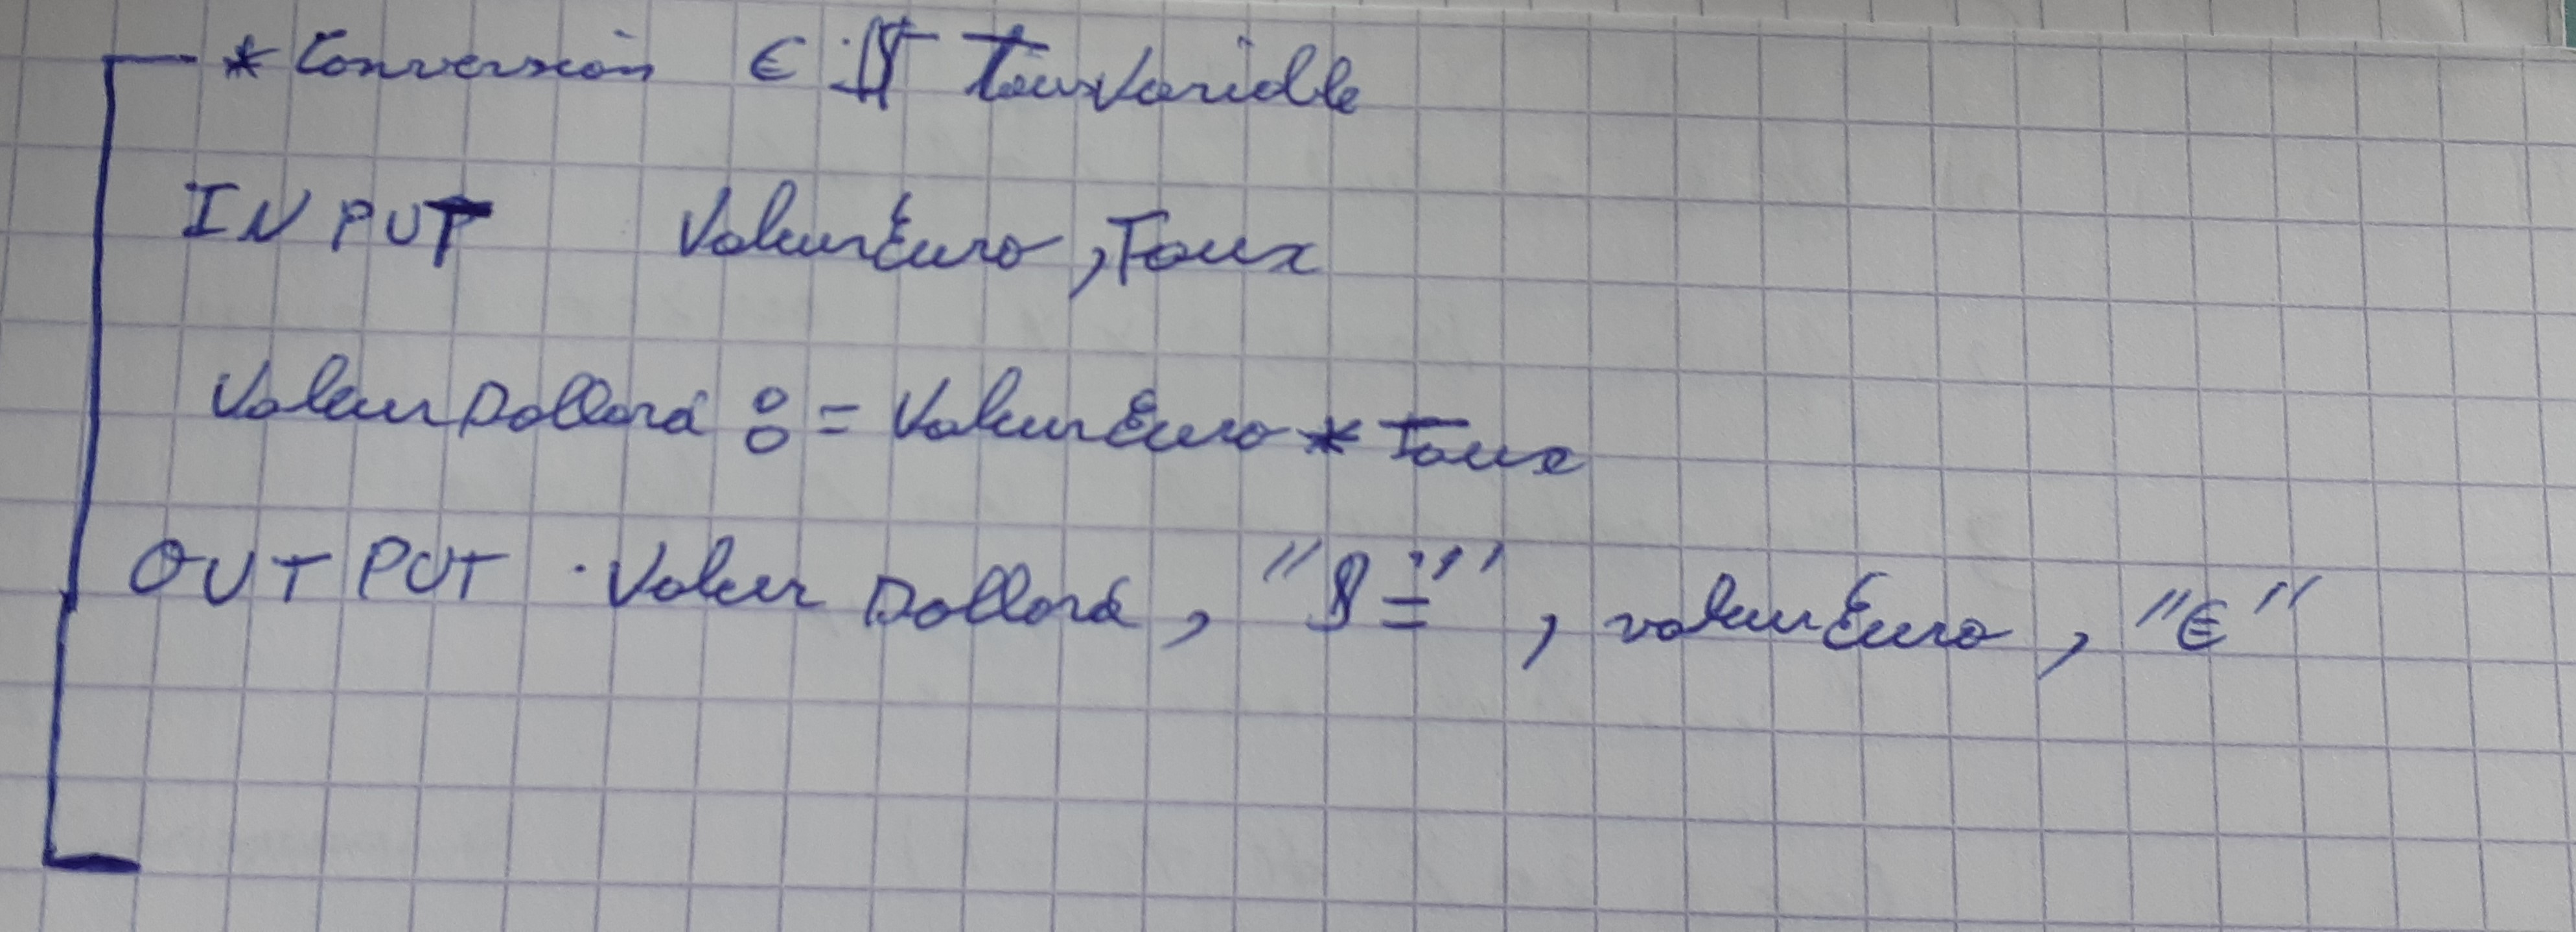 * Conversion € $ TauxVariable
INPUT ValeurEuro, Taux
ValeurDollars := ValeurEuro * Taux
OUTPUT Valeur Dollars, "$ =", valeurEuro, "€"